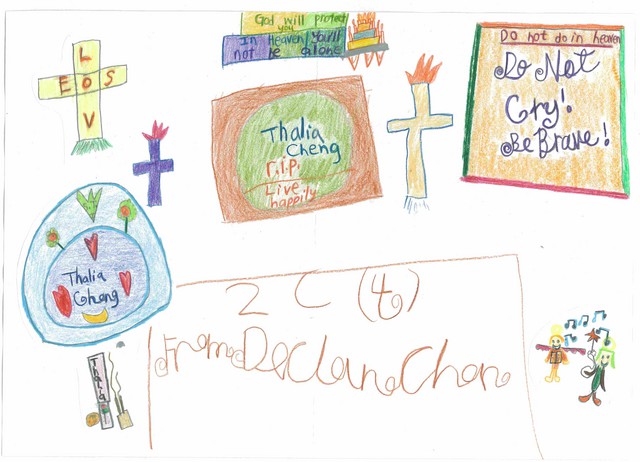 God will protect
you
In Heaven You'll
not be alone
L
E O S
V
Thalia
Cheng
r.i.p.
Live
happily
Do not do in heaven
Do Not
Cry!
Be Brave!
Thalia
Cheng
Thalia
2 C (4)
From Declan Chen